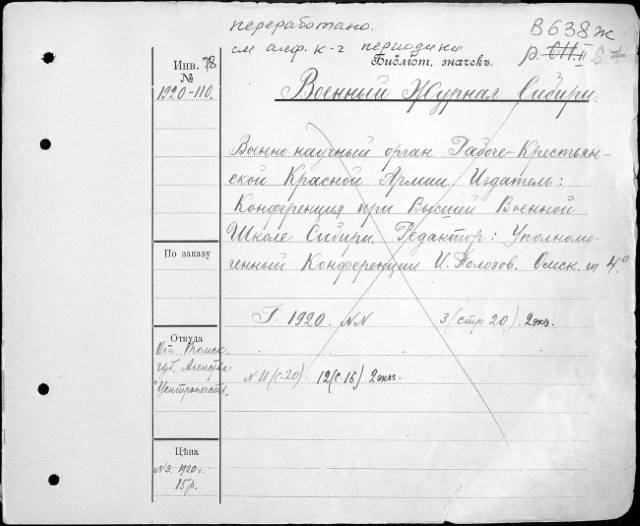 переработано.
см. алф. к-г периодики
В638ж
р.
Библіот. значекъ.
Инв. 78
№
1920-110.
Военный Журнал Сибири.
Военно-научный орган Рабоче-Крестьян-
ской Красной Армии. Издатель:
Конференция при Высшей Военной
Школе Сибири. Редактор: Уполномо-
ченный Конференции И. Полозов. Омск. 4°
По заказу
Г. 1920. NN 3 (стр 20). 2 экз.
Откуда
губ. Агенства
N 11 (с. 20) 12 (с. 16) 2 экз.
Цѣна
№3. 1920 г.
15 р.